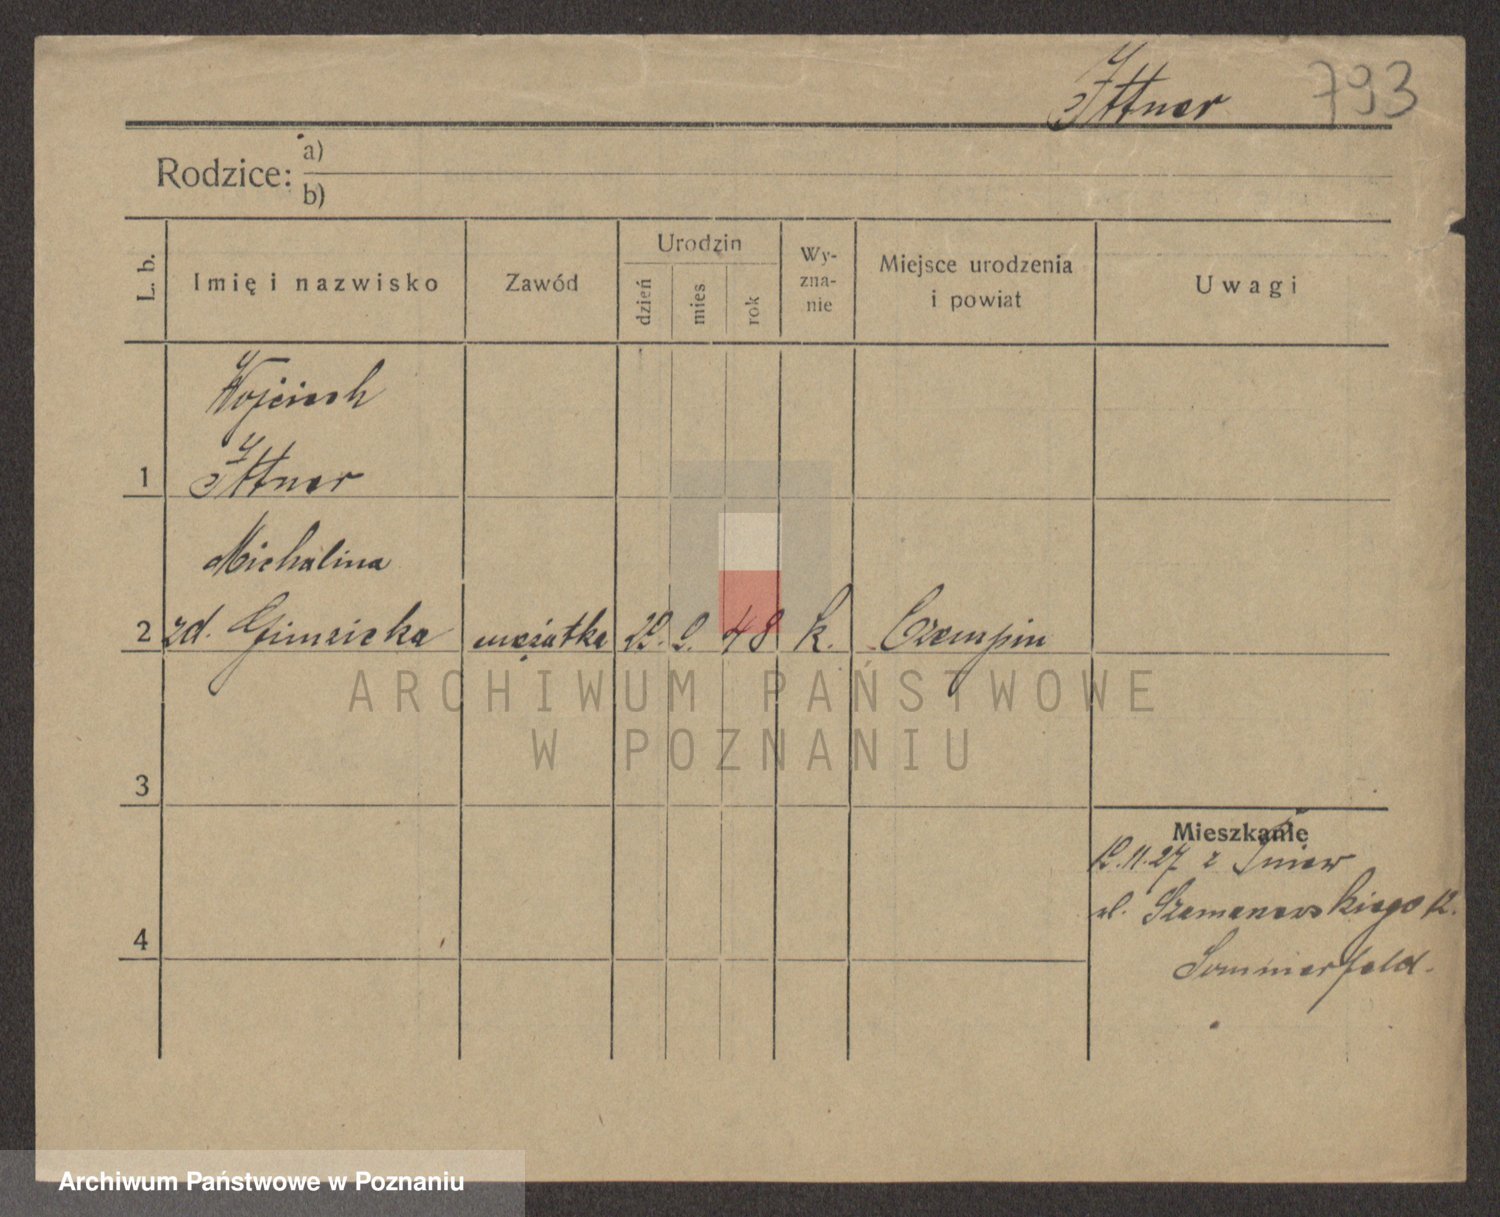 Ittner 793
Rodzice: a)
b)
L. b. Imię i nazwisko Zawód Urodzin dzień mies rok Wy-zna-nie Miejsce urodzenia i powiat Uwagi
Wojciech
1 Ittner
Michalina
2 zd. mężatka 48 k. Czempin
3
Mieszkanie
11.27 z
4 ul. 12.
Sommerfeld.
ARCHIWUM PAŃSTWOWE
W POZNANIU
Archiwum Państwowe w Poznaniu